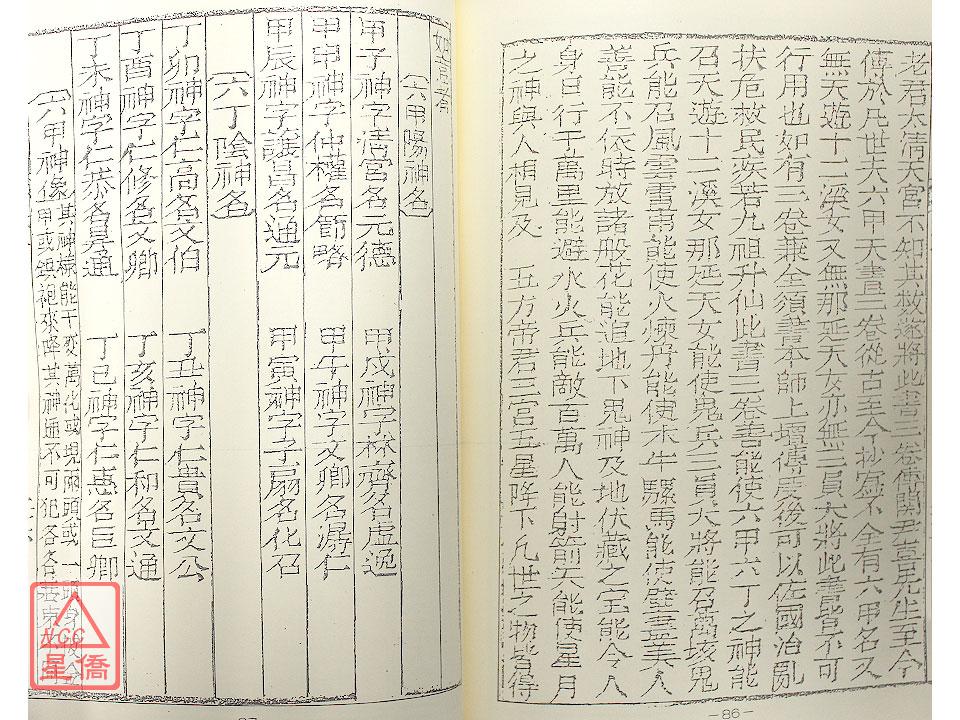 老君太清天宮不知其數遂將此書三卷傳關尹喜先生至今
傳於凡世夫六甲天書三卷從古至今抄寫不全有六甲名又
無天遊十二溪女又無那延天女亦無二員大將此書皆不可
行用也如有三卷兼全須書本師上壇傳度後可以佐國治亂
扶危救民疾苦九祖升仙此書三卷善能使六甲六丁之神能
召天遊十二溪女那延天女能使鬼兵二員大將能召萬垓鬼
兵能召風雲雷雨能使火煉丹能使木牛騾馬能使壁畫美人
善能不依時放諸般花能追地下鬼神及地伏藏之宝能令人
身日行千萬里能避水火兵能敵百萬人能射箭矢能使星月
之神與人相見及 五方帝君三宮五星降下凡世之物皆得
如意者
〔六甲陽神名〕
甲子神字清宮名元德 甲戌神字林齊名虛逸
甲申神字仲權名節略 甲午神字文卿名潺仁
甲辰神字讓昌名通元 甲寅神字子扇名化石
〔六丁陰神名〕
丁卯神字仁高名文伯 丁丑神字仁貴名文公
丁酉神字仁修名文卿 丁亥神字仁和名文通
丁未神字仁恭名昇通 丁巳神字仁惠名巨卿
〔六甲神像〕其神樣能千變萬化或現兩頭或一頭身披金
甲或錦袍來降其神通不可犯各各
-86-
ACC
星僑